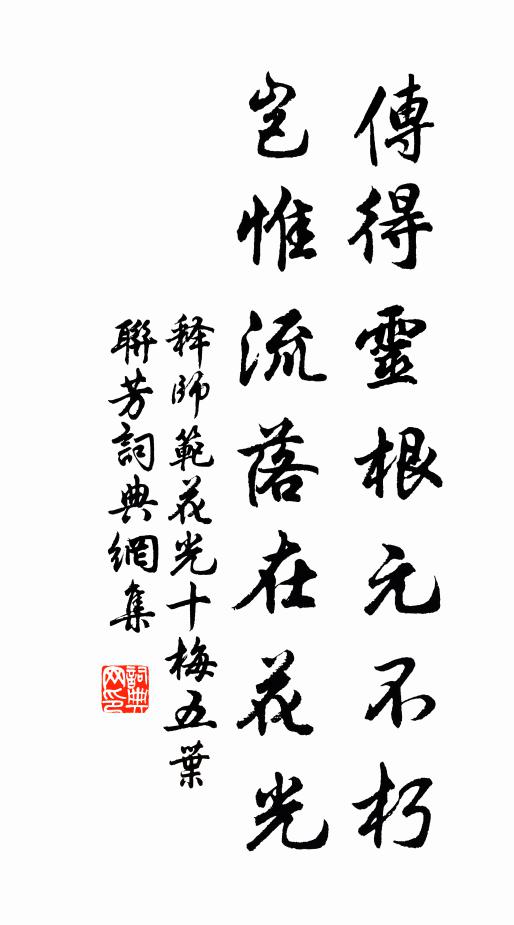 傳得靈根元不朽
豈惟流落在花光
釋師範花光十梅五葉
聯芳詞典網集
詞典網印